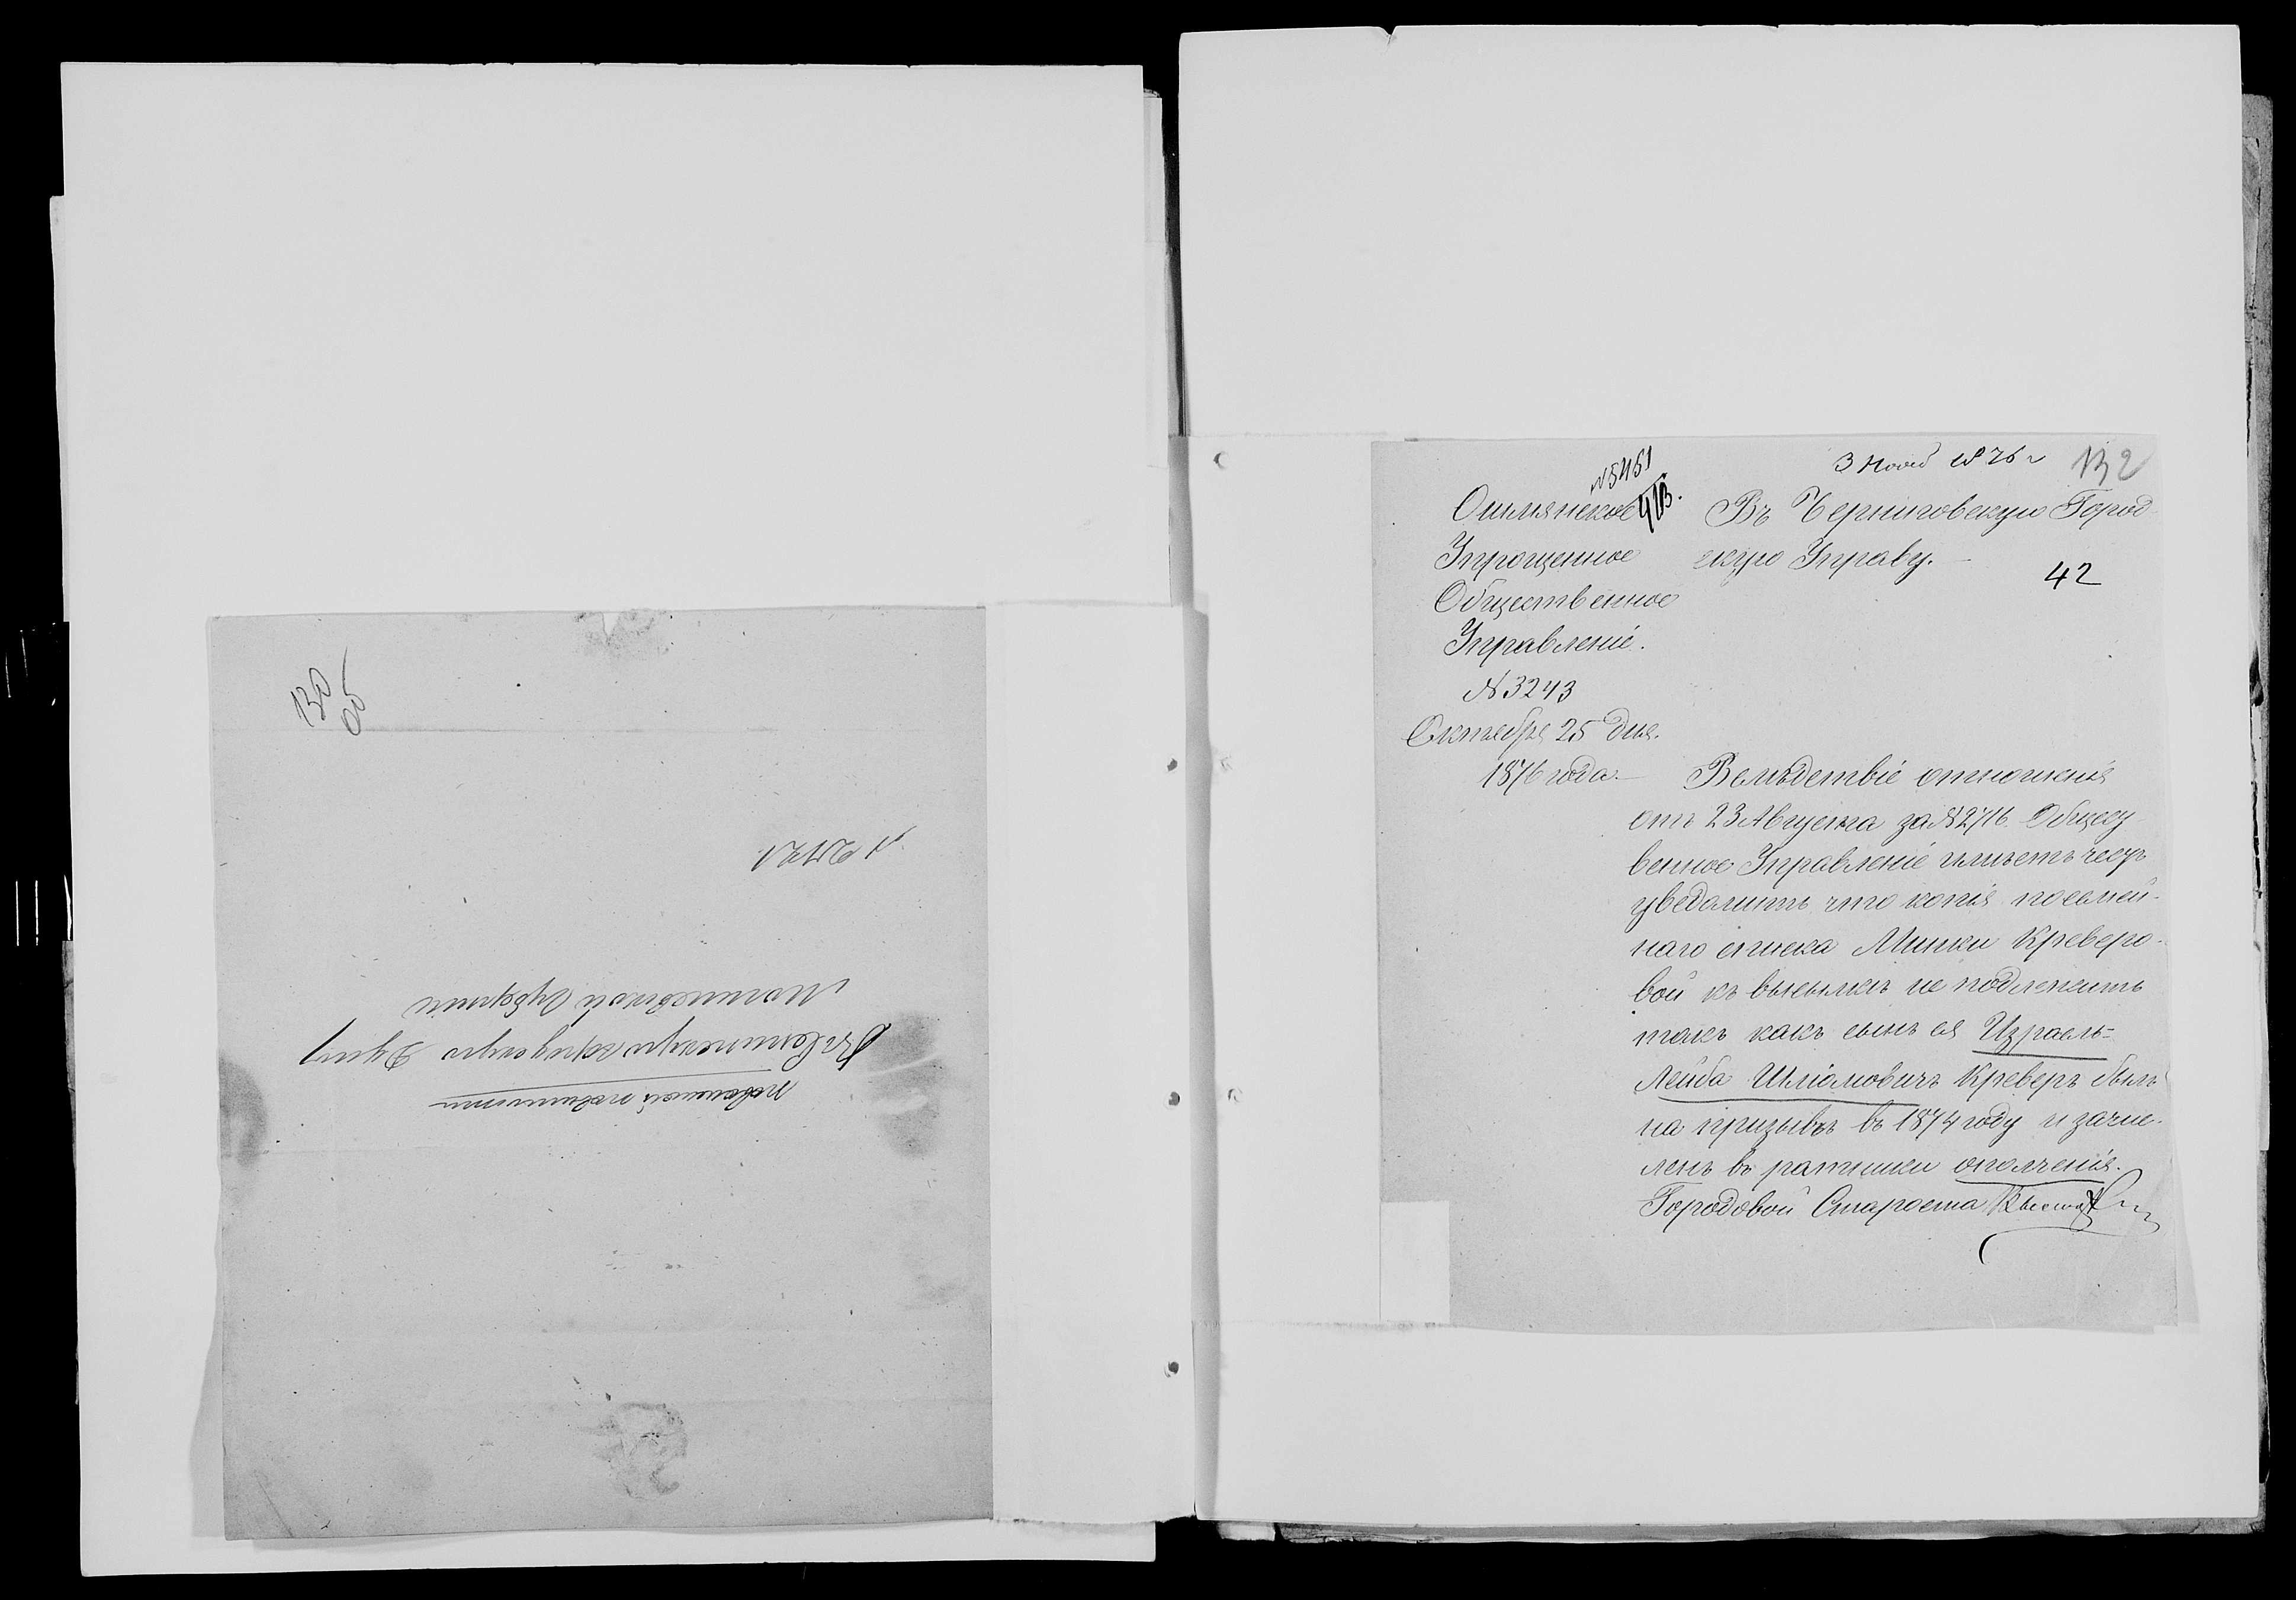 130
№ 2171.
повинности
Въ Сенинскую городскую Думу
Могилевской губерніи
№5451
3 Нояб 1876 г
132
Ошмянское
Упрощенное
Общественное
Управленіе.
№ 3243
Октября 25 дня.
1876 года.
Въ Черниговскую Город
скую Управу.
42
Вслѣдствіе отношенія
отъ 23 Августа за №2716. Общест
венное Управленіе имѣетъ честь
уведомить что копія посемей-
наго списка Минки Креверо-
вой къ высылкѣ не подлежитъ
такъ какъ сынъ ея Израель=
Лейба Шліомовичъ Креверъ былъ
на призывѣ въ 1874 году и зачис-
ленъ въ ратники ополченія.
Городовой Староста